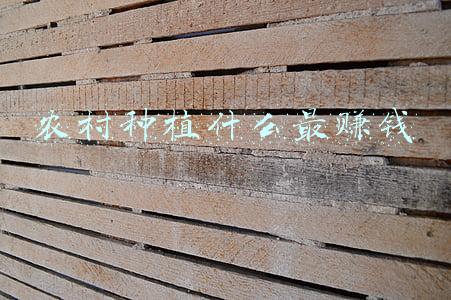 农村种植什么最赚钱